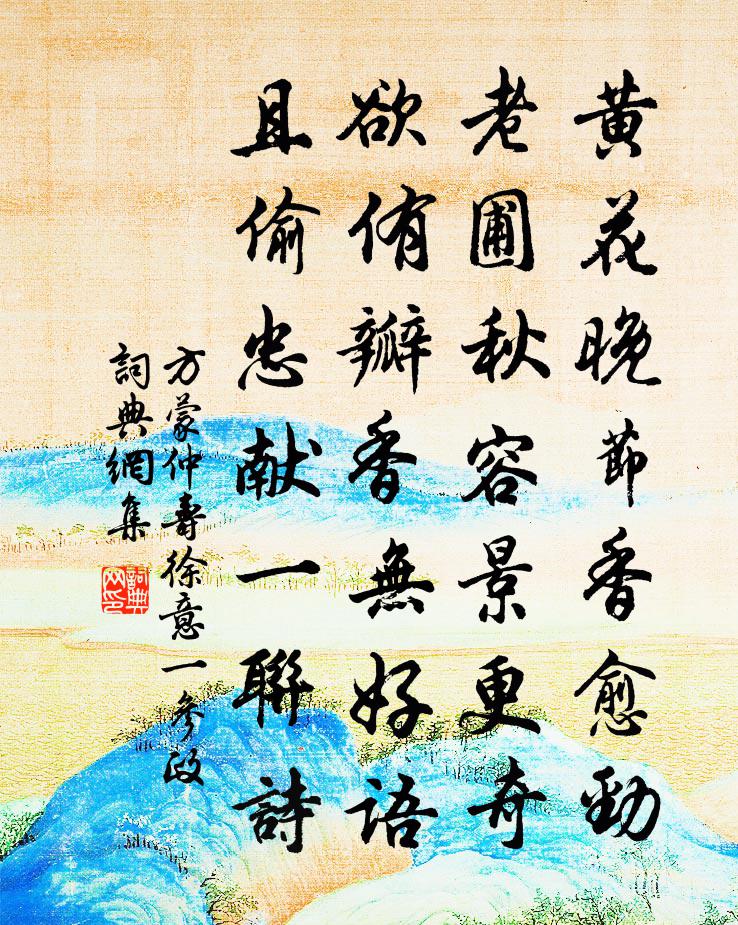 黄花晚節香愈勁
老圃秋容景更奇
欲侑瓣香無好語
且偷忠献一聯詩
方蒙仲壽徐意一參政
詞典網集
詞典網印